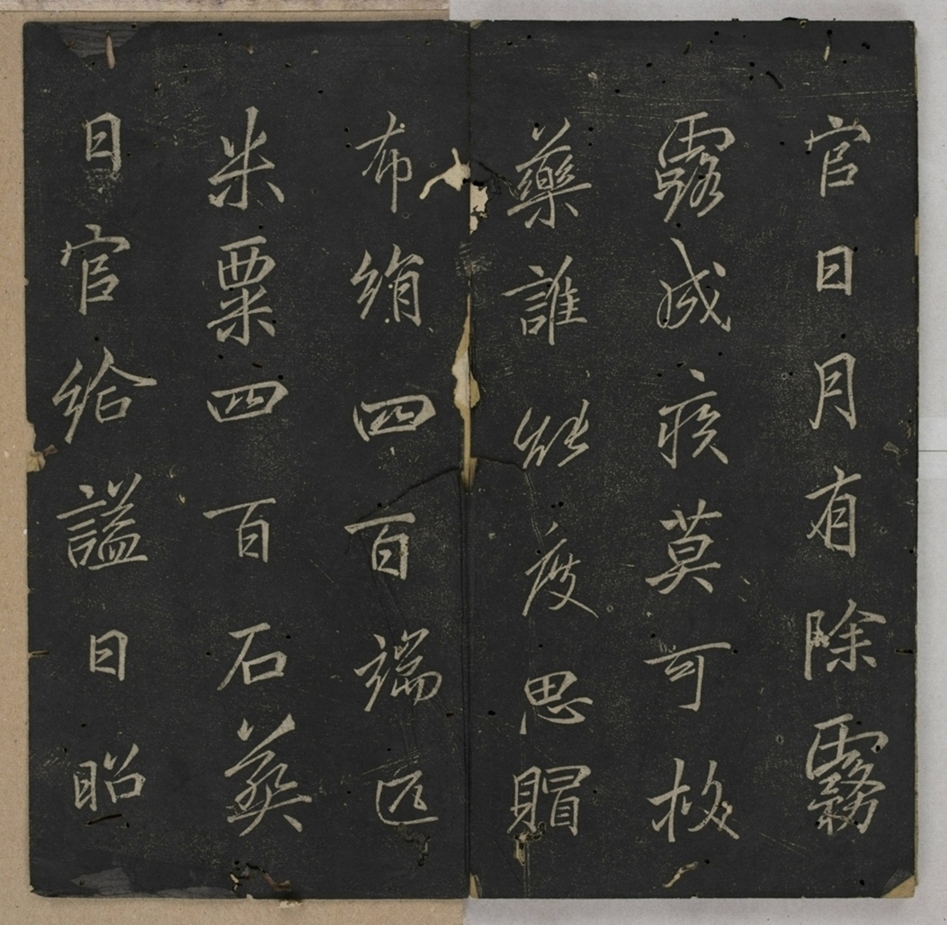 官日月有除霧
露成疾莫可救
藥誰能度思賵
布絹四百端匹
米粟四百石葬
日官給謚曰昭